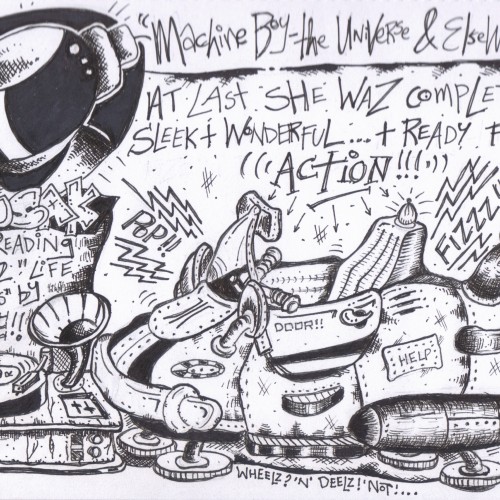 "Machine Boy-the Universe & Elsew
AT LAST SHE WAZ COMPLE
SLEEK + WONDERFUL... + READY
(((ACTION!!!)))
POP!!
FIZZZ
READING
"LIFE
" BY
DOOR!!
HELP!
WHEELZ?'N'DEELZ!'NOT!...